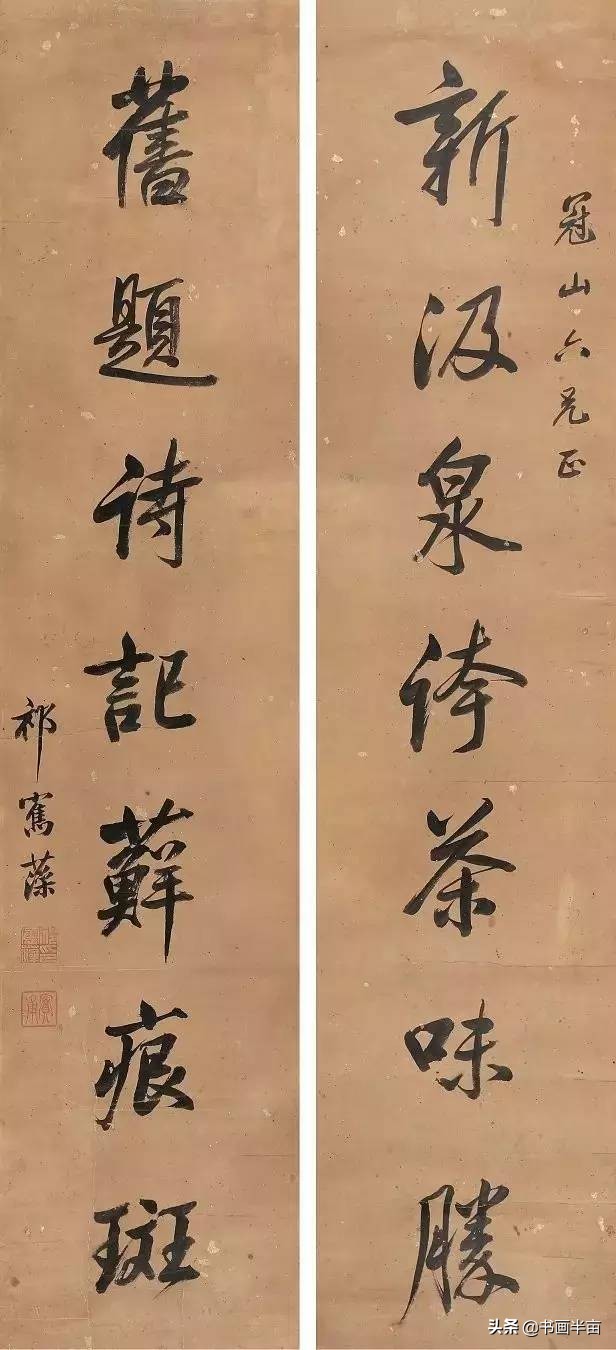 冠山六兄正
新汲泉誇茶味勝
舊題詩記蘚痕斑
祁寯藻
實甫
头条 @书画半亩